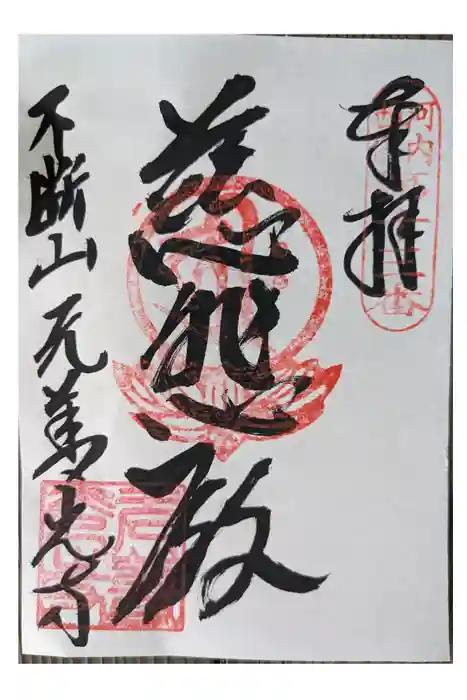 奉拝
慈悲殿
不断山 元善光寺